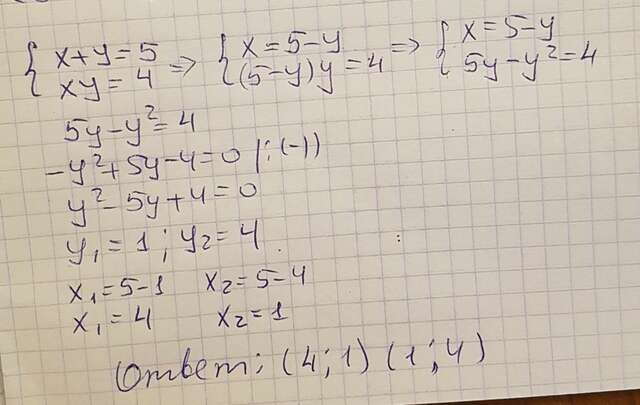 { x+y=5 => { x=5-y => { x=5-y
xy=4 (5-y)y=4 5y-y²=4
5y-y²=4
-y²+5y-4=0 |:(-1)
y²-5y+4=0
y₁=1; y₂=4.
x₁=5-1 x₂=5-4
x₁=4 x₂=1
Ответ: (4;1) (1;4)